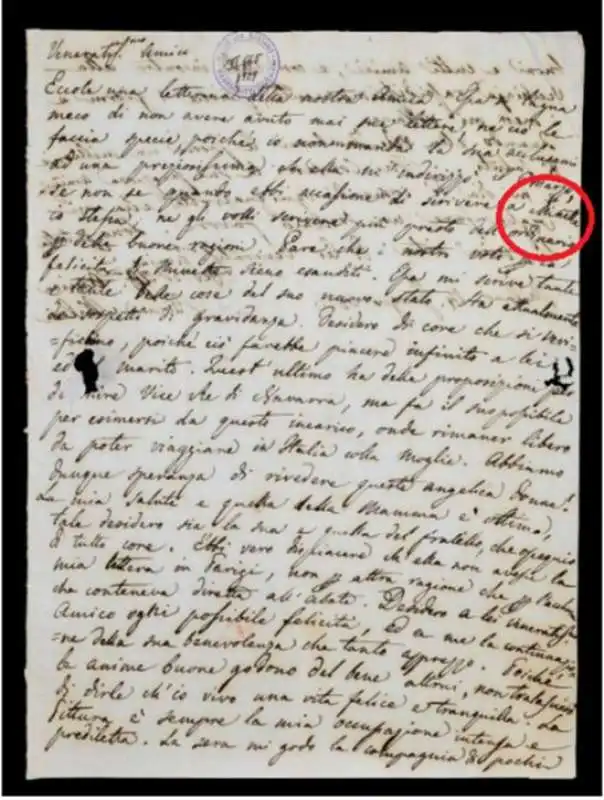 Venerat.mo Amico
Eccole una letterina della nostra Amica. Essa si lagna
meco di non avere avuto mai sue lettere, ne ciò le
faccia specie poichè io nonmancai la sua
ad una preziosissima ch'ella mi indirizzò
se non se quando ebbi occasione di scrivere a
io stessa, ne gli volli scrivere più presto del ordinario
p delle buone ragioni. Pare che i nostri voti p la
felicità di sieno esauditi. Essa mi scrive tante
belle cose del suo nuovo stato. Ha attualmente
de sospetti di gravidanza. Desidero di core che si veri=
=fichino, poichè ciò farebbe piacere infinito a lei
ed marito. Quest'ultimo ha della proposizione
di Vice Re di Navarra, ma fa il suo possibile
per esimersi da questo incarico, onde rimaner libero
da poter viaggiare in Italia colla moglie. Abbiamo
dunque speranza di rivedere queste angeliche Donne!
La mia salute e quella della Mamma è ottima,
tale desidero sia la sua e quella del fratello, che ossequio
di tutto core. Ebbi vero dispiacere ch'ella non avesse la
mia lettera in Parigi, non p altra ragione che p
che conteneva diretta all'Abate. Desidero a lei
Amico ogni possibile felicità. Ed a me la continuazio
=ne della sua benevolenza che tanto apprezzo. Poichè
le anime buone godono del bene altrui, non tralascierò
di dirle ch'io vivo una vita felice e tranquilla. La
Pittura è sempre la mia occupazione intensa e
prediletta. La sera mi godo la compagnia di pochi